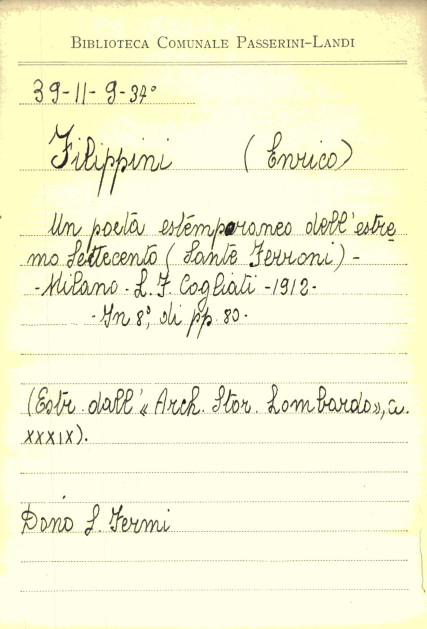 BIBLIOTECA COMUNALE PASSERINI-LANDI
39-11-9-34°
Filippini (Enrico)
Un poeta estemporaneo dell'estre
mo Settecento (Sante Ferroni) -
- Milano - L. F. Cogliati - 1912 -
- In 8°, di pp. 80 -
(Estr. dall'« Arch. Stor. Lombardo», a.
XXXIX).
Dono S. Fermi